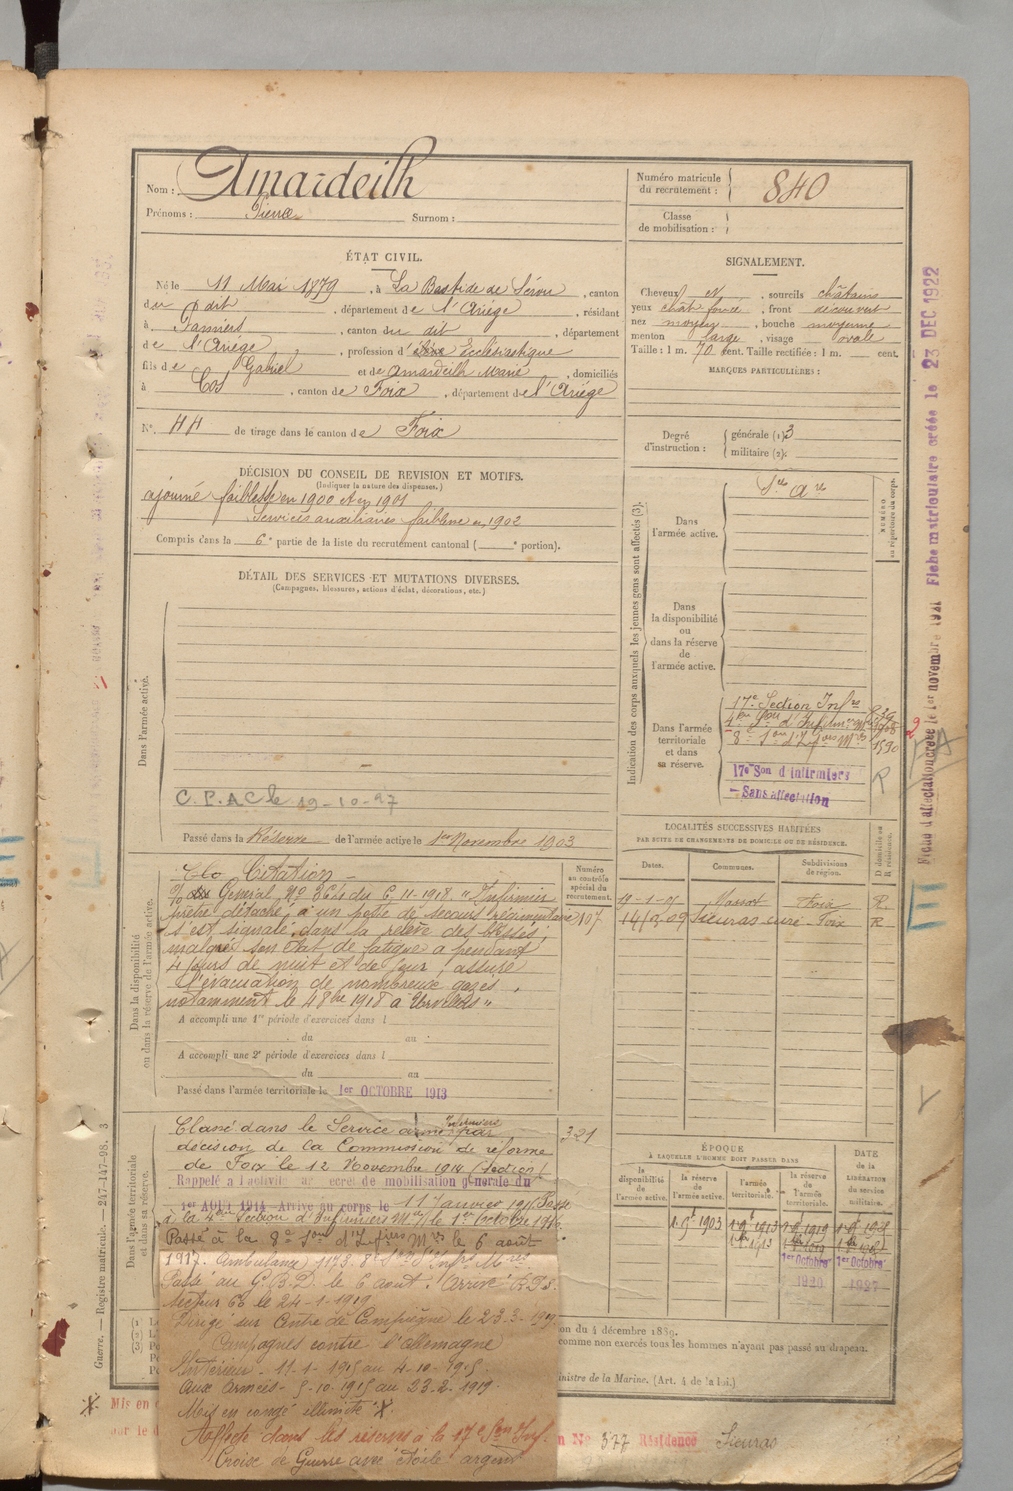 Nom : Amardeilh
Prénoms : Pierre Surnom :
Numéro matricule
du recrutement : 840
Classe
de mobilisation :
ÉTAT CIVIL.
Né le 11 Mai 1879, à La Bastide de Sérou, canton
du dit, département de l'Ariège, résidant
à Pamiers, canton du dit, département
de l'Ariège, profession d' Ecclésiastique
fils de Gabriel et de Amardeilh Marie, domiciliés
à Cos, canton de Foix, département de l'Ariège
N°. 44 de tirage dans le canton de Foix
SIGNALEMENT.
Cheveux N, sourcils châtains
yeux chât foncé, front découvert
nez moyen, bouche moyenne
menton large, visage ovale
Taille : 1 m. 70 cent. Taille rectifiée : 1 m. cent.
MARQUES PARTICULIÈRES :
Degré
d'instruction :
générale (1) 3
militaire (2):
DÉCISION DU CONSEIL DE REVISION ET MOTIFS.
(Indiquer la nature des dispenses.)
ajourné faiblesse en 1900 et en 1901
Services auxiliaires faiblesse en 1902
Compris dans la 6e partie de la liste du recrutement cantonal ( e portion).
DÉTAIL DES SERVICES ET MUTATIONS DIVERSES.
(Campagnes, blessures, actions d'éclat, décorations, etc.)
Dans l'armée active.
C.P.AC le 19-10-97
Passé dans la Réserve de l'armée active le 1er Novembre 1903
Indication des corps auxquels les jeunes gens sont affectés (3).
NUMÉRO
au répertoire du corps.
Dans
l'armée active.
Dans
la disponibilité
ou
dans la réserve
de
l'armée active.
Dans l'armée
territoriale
et dans
sa réserve.
17e Section Infres
17e Son d'infirmiers
Sans affectation
LOCALITÉS SUCCESSIVES HABITÉES
PAR SUITE DE CHANGEMENTS DE DOMICILE OU DE RÉSIDENCE.
Dates. Communes. Subdivisions
de région.
D domicile ou
R résidence.
Massat Foix R.
14/3-09 Sieuras curé - Foix R
Dans la disponibilité
ou dans la réserve de l'armée active.
Numéro
au contrôle
spécial du
recrutement.
107
Citation -
Général No 364 du 6-11-1918. "Infirmier
prêtre détaché à un poste de secours régimentaire
s'est signalé dans la relève des blessés,
malgré son état de fatigue a pendant
4 jours de nuit et de jour, assuré
l'évacuation de nombreux gazés,
notamment le 4 8bre 1918 à Urvillers"
A accompli une 1re période d'exercices dans l
du au
A accompli une 2e période d'exercices dans l
du au
Passé dans l'armée territoriale le 1er OCTOBRE 1913
Dans l'armée territoriale
et dans sa réserve.
Classé dans le Service armé par
décision de la Commission de réforme
de Foix le 12 Novembre 1914 (Section
321
Rappelé à l'activité décret de mobilisation générale du
1er AOUT 1914 Arrivé au corps le 11 Janvier 1915 Passé
à la 4e Section d'Infirmiers Mres le 1er Octobre 1916.
Passé à la 8e Son d'Infiers Mres le 6 août
1917. Ambulance 1173. 8e Son d'Infrs Mres
Passé au G.B.D. le 6 août. Arrivé
secteur 66 le 24-1-1919
Dirigé sur Centre de Compiègne le 23-3-1919
Campagnes contre l'Allemagne
Intérieur - 11-1-1915 au 4-10-1915.
Aux Armées - 5-10-1915 au 23-2-1919.
Mis en congé illimité X.
Affecté dans les réserves à la 17e Son Inf.
Croix de Guerre avec étoile argent
ÉPOQUE
À LAQUELLE L'HOMME DOIT PASSER DANS
la
disponibilité
de
l'armée active.
la réserve
de
l'armée active.
l'armée
territoriale.
la réserve
de l'armée
territoriale.
DATE
de la
LIBÉRATION
du service
militaire.
1er Octobre 1er Octobre
1920 1927
on du 4 décembre 1889.
comme non exercés tous les hommes n'ayant pas passé au drapeau.
inistre de la Marine. (Art. 4 de la loi.)
Mis en
n No 377 Résidence Sieuras
Guerre. — Registre matricule. — 247-147-98. 3
Fiche d'affectation créée le 1er novembre 1921 Fiche matriculaire créée le 23 DEC 1922